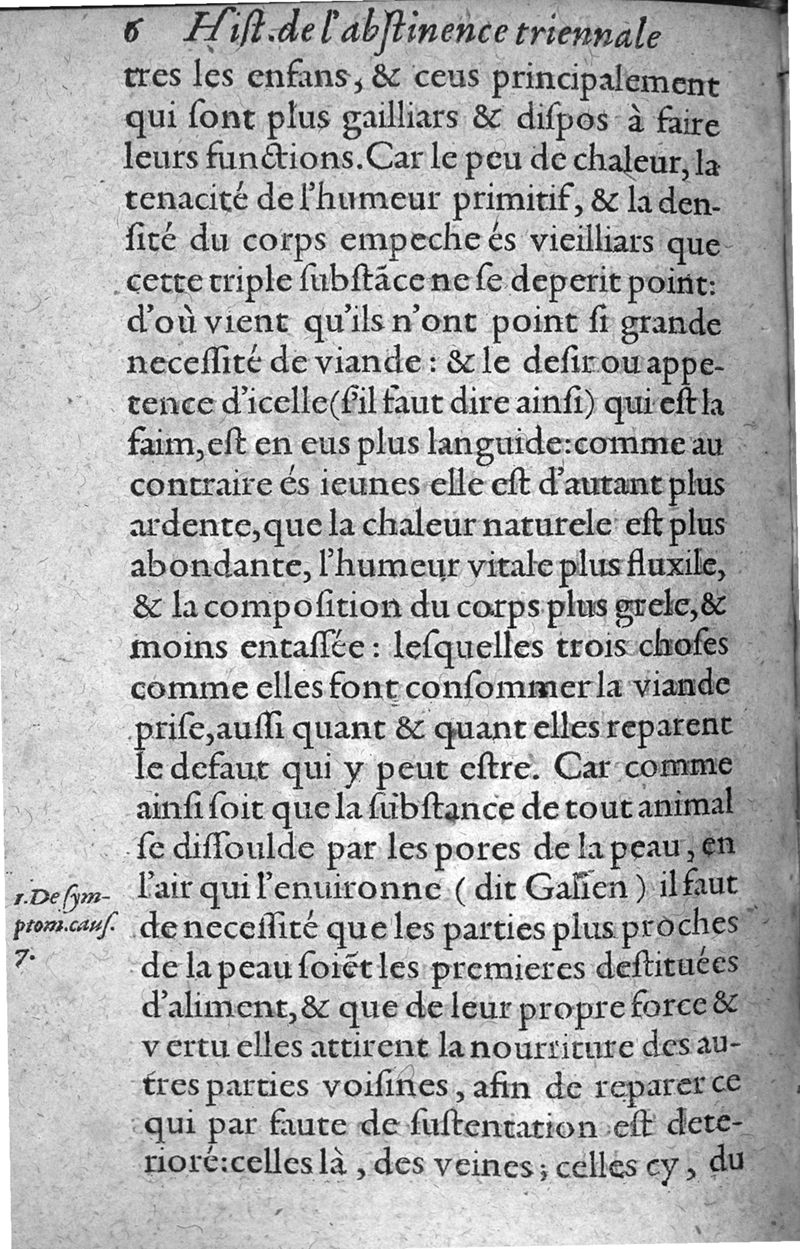 6 Hiſt.de l'abſtinence triennale
tres les enfans, & ceus principalement
qui ſont plus gailliars & diſpos à faire
leurs functions.Car le peu de chaleur, la
tenacité de l'humeur primitif, & la den-
ſité du corps empeche és vieilliars que
cette triple ſubſtãce ne ſe deperit point:
d'où vient qu'ils n'ont point ſi grande
neceſſité de viande : & le deſir ou appe-
tence d'icelle(ſ'il faut dire ainſi) qui eſt la
faim,eſt en eus plus languide:comme au
contraire és ieunes elle eſt d'autant plus
ardente,que la chaleur naturele eſt plus
abondante, l'humeur vitale plus fluxile,
& la compoſition du corps plus grele,&
moins entaſſée : leſquelles trois choſes
comme elles font conſommer la viande
priſe,auſſi quant & quant elles reparent
le defaut qui y peut eſtre. Car comme
ainſi ſoit que la ſubſtance de tout animal
ſe diſſoulde par les pores de la peau, en
l'air qui l'enuironne ( dit Galien ) il faut
de neceſſité que les parties plus proches
de la peau ſoiẽt les premieres deſtituées
d'aliment,& que de leur propre force &
vertu elles attirent la nourriture des au-
tres parties voiſines, afin de reparer ce
qui par faute de ſuſtentation eſt dete-
rioré:celles là, des veines; celles cy, du
1.De ſym-
ptom.cauſ.
7.